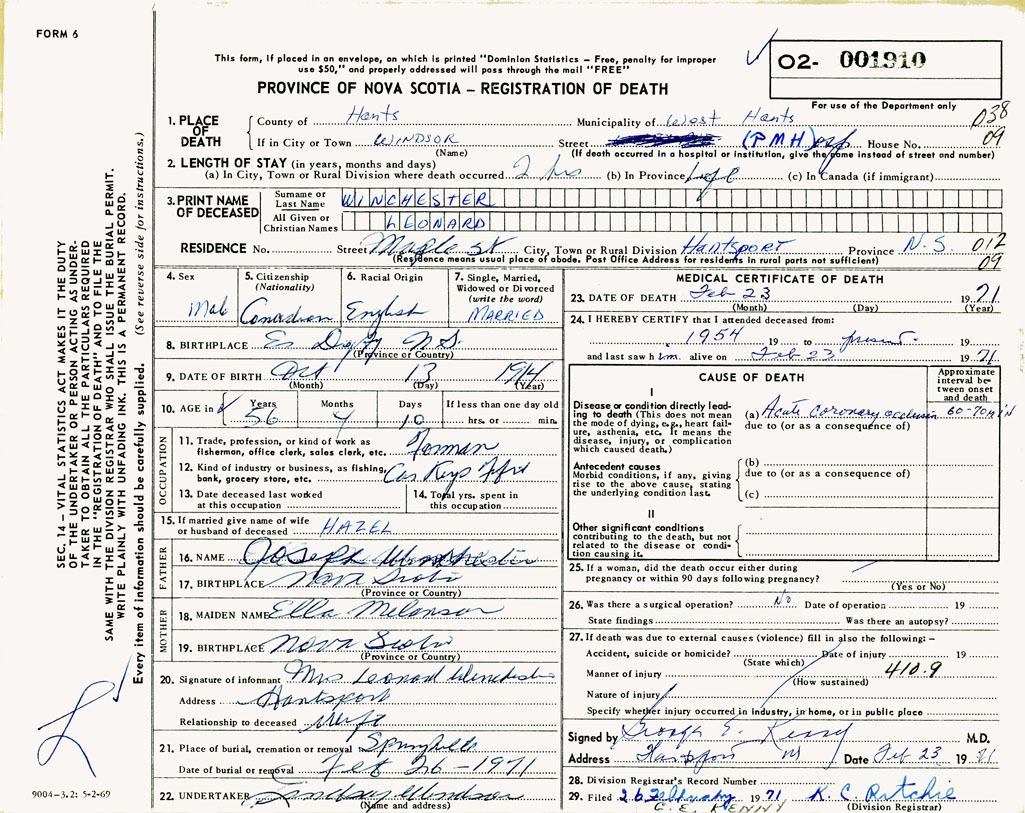 FORM 6
This form, if placed in an envelope, on which is printed "Dominion Statistics – Free, penalty for improper
use $50," and properly addressed will pass through the mail "FREE"
O2- 001910
PROVINCE OF NOVA SCOTIA – REGISTRATION OF DEATH
For use of the Department only
038
09
1. PLACE OF DEATH
County of Hants Municipality of West Hants
If in City or Town WINDSOR Street (PMH) House No.
(Name) (If death occurred in a hospital or institution, give the name instead of street and number)
2. LENGTH OF STAY (in years, months and days)
(a) In City, Town or Rural Division where death occurred 2 hrs (b) In Province Life (c) In Canada (if immigrant)
3. PRINT NAME OF DECEASED
Surname or Last Name WINCHESTER
All Given or Christian Names LEONARD
RESIDENCE No. Street Maple St City, Town or Rural Division Hantsport Province N.S. 012
09
(Residence means usual place of abode. Post Office Address for residents in rural parts not sufficient)
4. Sex Male
5. Citizenship (Nationality) Canadian
6. Racial Origin English
7. Single, Married, Widowed or Divorced (write the word) MARRIED
8. BIRTHPLACE Digby N.S.
(Province or Country)
9. DATE OF BIRTH Oct 13 1914
(Month) (Day) (Year)
10. AGE in Years 56 Months 4 Days 10 If less than one day old hrs. or min.
OCCUPATION
11. Trade, profession, or kind of work as fisherman, office clerk, sales clerk, etc. Forman
12. Kind of industry or business, as fishing, bank, grocery store, etc. Can Keys
13. Date deceased last worked at this occupation
14. Total yrs. spent in this occupation
15. If married give name of wife or husband of deceased HAZEL
FATHER
16. NAME Joseph Winchester
17. BIRTHPLACE Nova Scotia
(Province or Country)
MOTHER
18. MAIDEN NAME Ella Melanson
19. BIRTHPLACE Nova Scotia
(Province or Country)
20. Signature of informant Mrs Leonard Winchester
Address Hantsport
Relationship to deceased Wife
21. Place of burial, cremation or removal
Date of burial or removal Feb 26 - 1971
22. UNDERTAKER Lindsay Windsor
(Name and address)
MEDICAL CERTIFICATE OF DEATH
23. DATE OF DEATH Feb 23 1971
(Month) (Day) (Year)
24. I HEREBY CERTIFY that I attended deceased from:
1954 19 to present
and last saw him alive on Feb 23 1971
CAUSE OF DEATH
Approximate interval between onset and death
I
Disease or condition directly leading to death (This does not mean the mode of dying, e.g., heart failure, asthenia, etc. It means the disease, injury, or complication which caused death.)
(a) Acute coronary occlusion 60-70 min
due to (or as a consequence of)
Antecedent causes
Morbid conditions, if any, giving rise to the above cause, stating the underlying condition last.
(b)
due to (or as a consequence of)
(c)
II
Other significant conditions
contributing to the death, but not related to the disease or condition causing it.
25. If a woman, did the death occur either during
pregnancy or within 90 days following pregnancy?
(Yes or No)
26. Was there a surgical operation? No Date of operation 19
State findings Was there an autopsy?
27. If death was due to external causes (violence) fill in also the following: –
Accident, suicide or homicide? Date of injury 19
(State which)
Manner of injury 410.9
(How sustained)
Nature of injury
Specify whether injury occurred in industry, in home, or in public place
Signed by George E. Kenny M.D.
Address Hantsport NS Date Feb 23 1971
28. Division Registrar's Record Number
29. Filed 26 February 1971 K. C. Ritchie
G. E. KENNY (Division Registrar)
SEC. 14 – VITAL STATISTICS ACT MAKES IT THE DUTY
OF THE UNDERTAKER OR PERSON ACTING AS UNDER-
TAKER TO OBTAIN ALL THE PARTICULARS REQUIRED
IN THE "REGISTRATION OF DEATH" AND TO FILE THE
SAME WITH THE DIVISION REGISTRAR WHO SHALL ISSUE THE BURIAL PERMIT.
WRITE PLAINLY WITH UNFADING INK. THIS IS A PERMANENT RECORD.
Every item of information should be carefully supplied. (See reverse side for instructions.)
9004-3.2: 5-2-69